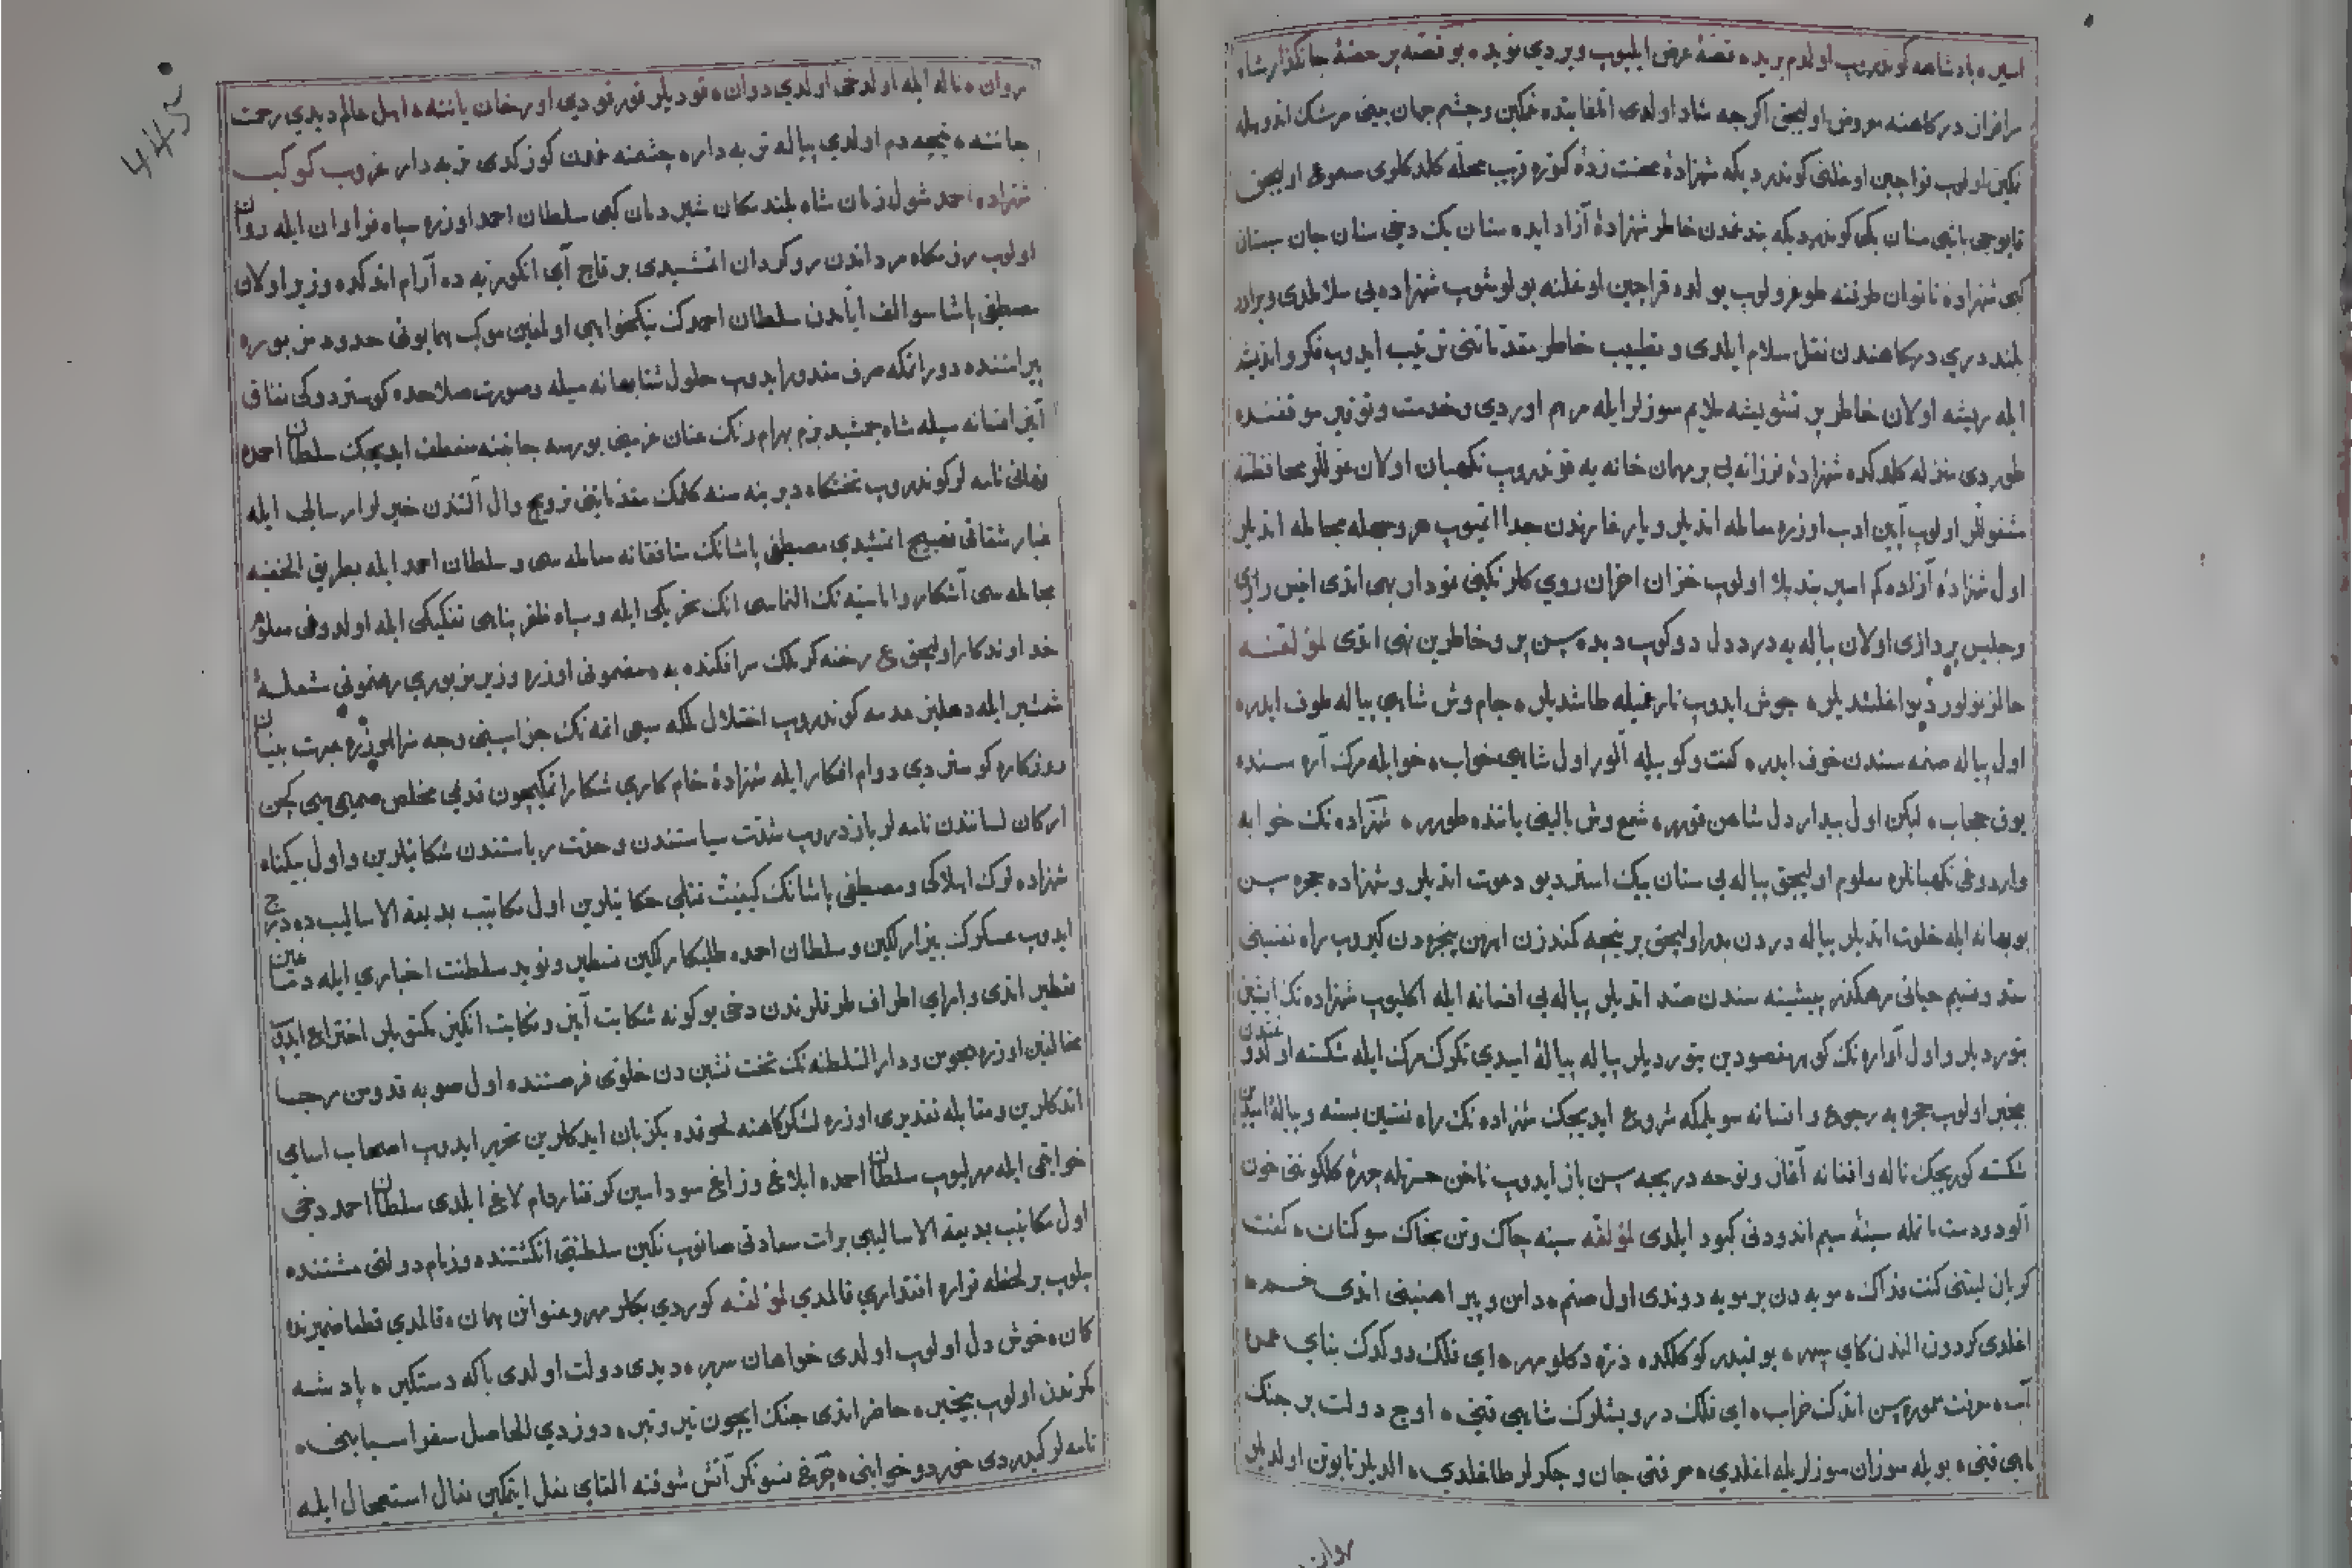 اسیره پادشاهه کوندروب اولدم بریده قصهٔ عرض ایلیوب ویردی نویده بو قصه پر حصهٔ جانکذار شاه
سرافراز درکاهنه معروض اولیجق اکرچه شاد اولدی اما غایتده غمکین وچشم جهان بینی سرشک اندوهله
نکین اولوب قراجین اوغلنی کوندردیکه شهزادهٔ محنت زدهٔ کوتره قریب محله کلدکلری مسموع اولیجق
قاپوجی باشی سنان بکی کوندردیکه بند غمدن خاطر شهزادهٔ آزاد ایده سنان بک دخی سنان جان ستان
کبی شهزادهٔ ناتوان طرفنه طوغرولوب یولده قراجین اوغلنه بولوشوب شهزاده یی سلاملدی وبرادر
بلند دری درکاهندن نقل سلام ایلدی و تطییب خاطر مقدماتنی ترتیب ایدوب فکر واندیشه
ایله ریشه اولان خاطر پر تشویشه ملایم سوزلر ایله مرهم اوردی وخدمت وتوقیر موقفنده
طوردی منزله کلدکده شهزادهٔ فرزانه یی بر مهمان خانه یه قوندروب نکهبان اولان قوللر محافظه
مشغوللر اولوب آیین ادب اوزره معامله اتدیلر ویار غارندن جدا اتمیوب هر وجهله مجامله اتدیلر
اول شهزادهٔ آزاده کم اسیر بند بلا اولوب خزان احزان روی کلرنکینی نودار بهی اتدی انیس رازی
وجلیس پردازی اولان پیاله یه درد دل دوکوب دیده سن پر وخاطرین تهی اتدی لمؤلفه
حالمز نولور دیو اغلشدیلر ٥ جوش ایدوب نار غمیله طاشدیلر ٥ جام وش شاهی پیاله طوف ایدر ٥
اول پیاله صنمه سندن خوف ایدر ٥ کفت وکو بیله آلور اول شاهی خواب ٥ خوابله مرک آره سنده
یوق حجاب ٥ لیکن اول بیدار دل شاهن قورر ٥ شمع وش بالینی یاننده طورر ٥ شهزاده نک خوابه
واردوغی نکهبانلره معلوم اولیجق پیاله یی سنان بیک استر دیو دعوت اتدیلر وشهزاده حجره سن
بو بهانه ایله خلوت اتدیلر پیاله دردن بدر اولیجق بر نیجه کمندزن اهرمن پنجره دن کیروب راه نفسینی
سد ونسیم حیاتی رهکذر پیشینه سندن صد اتدیلر پیاله یی افسانه ایله اکلیوب شهزاده نک ایشین
بتوردیلر واول آواره نک کوهر مقصودین یتوردیلر پیاله پیالهٔ امیدی تکرک مرک ایله شکسته اولدوغندن
بیخبر اولوب حجره یه رجوع وافسانه سویلمکه شروع ایدیجک شهزاده نک راه نفسین بسته وپیالهٔ امیدین
شکسته کوریجک ناله وافغانه آغاز ونوحه دریچه سن باز ایدوب ناخن حسرتله چهرهٔ کلکونی خون
آلود ودست ناله سینهٔ سیم اندودنی کبود ایلدی لمؤلفه سینه چاک وتن بخاک سو کنان ٥ کفت
کریان لیتنی کنت فداک ٥ مویه دن بر مویه دوندی اول صنم ٥ دامن و پیراهنینی اتدی خم ٥
اغلدی کردون الندن کای سپهر ٥ بونیدر کوکلکده ذره دکلو مهر ٥ ای فلک دوکدک بنای عمرن
آب ٥ سونت عموره سن اتدک خراب ٥ ای فلک درویشلوک شاهی قنی ٥ اوج دولت برجنک
ماهی قنی ٥ بویله سوزان سوزلریله اغلدی ٥ حرقتی جان وجکرلر طاغلدی ٥ الدیلر تابوتن اولدیلر
روان
روان ٥ ناله ایله اولدخی اولدی دوان ٥ قودیلر قبر قودی اورخان یاننه ٥ اهل عالم دیدی رحمت
جاننه ٥ نیجه دم اولدی پیاله تربه دار ٥ چشمنه غمدن کوزکدی تربه دار غروب کوکب
شهزاده احمد شول زمان شاه بلند مکان شیر دمان کبی سلطان احمد اوزره سپاه فراوان ایله روان
اولوب رزمکاه مرداندن روکردان اتمشیدی بر قاچ آی انکوریه ده آرام اتدکده وزیر اولان
مصطفی پاشا سوالف ایامدن سلطان احمدک نیکخواهی اولمغین موکب همایونی حدود مزبوره
پیرامننده دوراتمکه صرف مقدور ایدوب حلول شتا بهانه سیله وصورت صلاحده کوستردوکی نفاق
آمیز افسانه سیله شاه جمشید بزم بهرام رزمک عنان عزمنی بورسه جانبنه منعطف ایدیجک سلطان احمده
نهانی نامه لر کوندروب تختکاه دیرینه سنه کلمک مقدماتنی ترویج وال آلتندن خبرلر ارسالی ایله
غبار شقاقی تهییج اتمشیدی مصطفی پاشانک منافقانه معامله سی وسلطان احمد ایله بطریق الخفیه
مجامله سی آشکار واماسیه نک التماسی انک تحریکی ایله وسپاه ظفر پناهی تفکیکی ایله اولدوغی معلوم
خداوندکار اولیجق ع رخنه کر ملک سرافکنده به ٥ مضمونی اوزره وزیر مزبوری رهنمونی شعلهٔ
شمشیر ایله دهلیز عدمه کوندروب اختلال ملکه سعی اتمه نک جزاسنی وجه سزا اوزره عبرت بینان
روزکاره کوستردی دوام افکار ایله شهزادهٔ خام کاری شکار اتمکیچون قدمی مخلص صمیمی کبی
ارکان لساندن نامه لر یازدروب شدت سیاستندن وحدت ریاستندن شکایتلرین واول بیکناه
شهزاده لرک اهلاکی ومصطفی پاشانک کیفیت قتلی حکایتلرین اول مکاتیب بدیعة الاسالیب ده درج
ایدوب عسکرک بیزارلکین وسلطان احمده طلبکارلکین تسطیر ونوید سلطنت اخباری ایله دماغن
تعطیر اتدی وامرای اطراف طرفلرندن دخی بو کونه شکایت آمیز ونکایت انکیز مکتوبلر اختراع ایدوب
مخالفین اوزره هجومن ودار السلطنه نک تخت نشین دن خلوی فرصتنده اول صوبه قدومن رجا
اتدکلرین ومقابله تقدیری اوزره لشکرکاهنه لحوقده یکزبان ایدکلرین تحریر ایدوب اصحاب اسامی
خواتمی ایله مهرلیوب سلطان احمده ابلاغ وزاغ سوداسین کرفتار دام لاغ ایلدی سلطان احمد دخی
اول مکاتیب بدیعة الاسالیبی برات سعادتی صانوب نکین سلطنتی انکشتنده وزمام دولتی مشتنده
بیلوب بر لحظه قراره اقتداری قالمدی لمؤلفه کوردی بکلر مهر وعنوانن همان ٥ قالمدی قطعا ضمیرنده
کمان ٥ خوش دل اولوب اولدی خواهان سریر ٥ دیدی دولت اولدی باکه دستکیر ٥ پادشه
مکرندن اولوب بیخبر ٥ حاضر اتدی جنک ایچون تیر وتبر ٥ دوزدی الحاصل سفر اسبابنی ٥
نامه لر کیدردی خورد وخوابنی ٥ چرخ نسونکر آتش شوقنه القای نعل ایتمکین نعال استعجال ایله